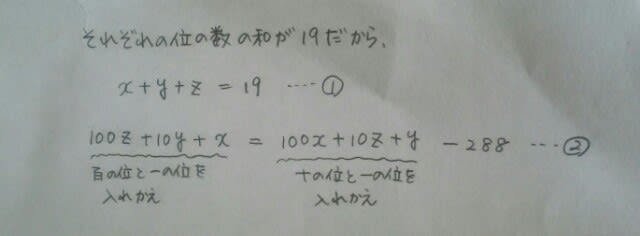 それぞれの位の数の和が19だから、
x+y+z = 19 ‥‥①
100z+10y+x = 100x+10z+y -288 ‥‥②
百の位と一の位を 十の位と一の位を
入れかえ 入れかえ